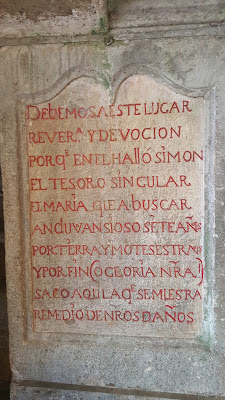 DEBEMOS A ESTE LUGAR
REVER.ª Y DEVOCION
PORQ.ᵉ EN EL HALLÓ SIMON
EL TESORO SINGULAR
EL MARIA QUE A BUSCAR
ANDUVANSIOSO SETEAÑ.ˢ
POR TIERRA Y MOTES ESTRAÑ.ˢ
Y POR FIN (O GLORIA NR̃A!)
SACO AQUI LA Q.ᵉ SE MIESTRA
REMEDIO DE NROS DAÑOS